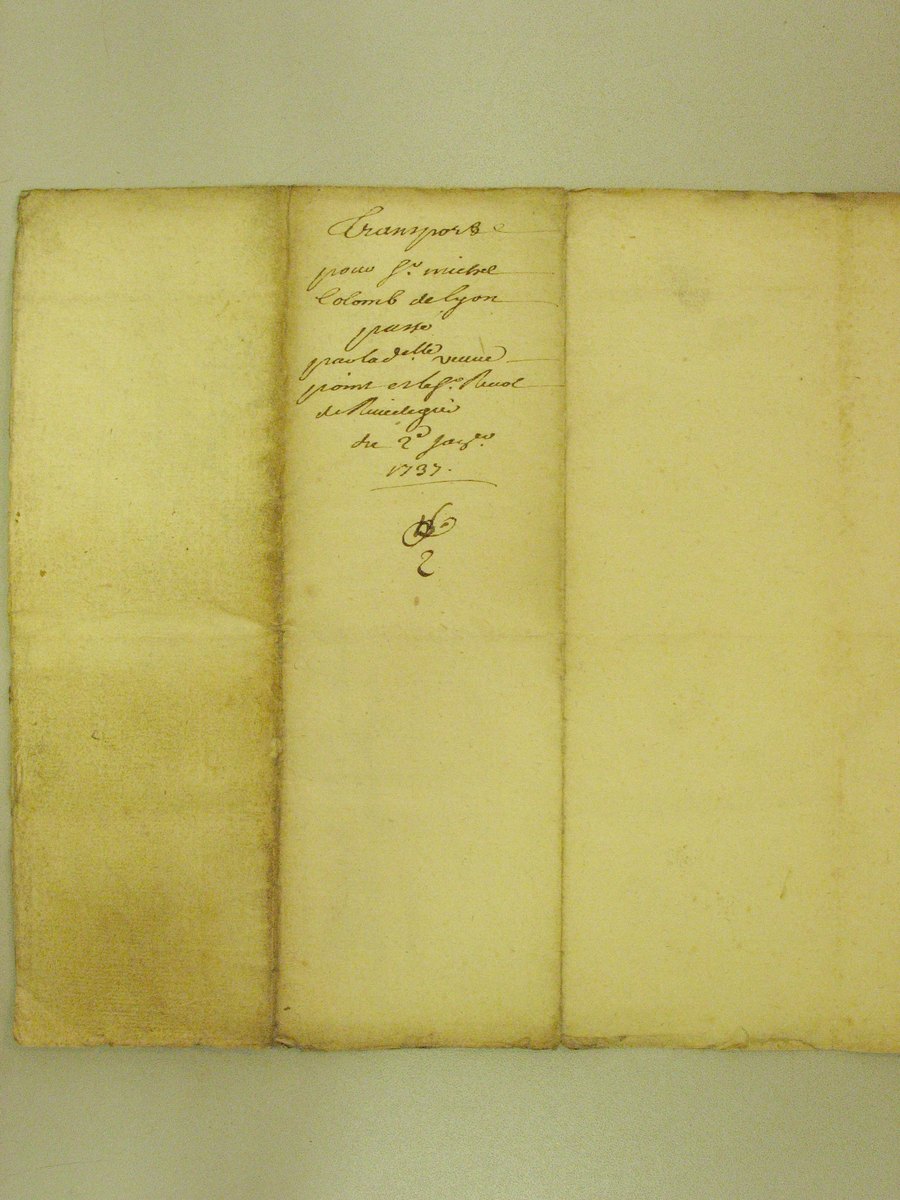 Transport
pour Sr. michel
Colomb de Lyon
passé
par la delle. veuve
point et le Sr. Revol
de
du 2e
1737.
2